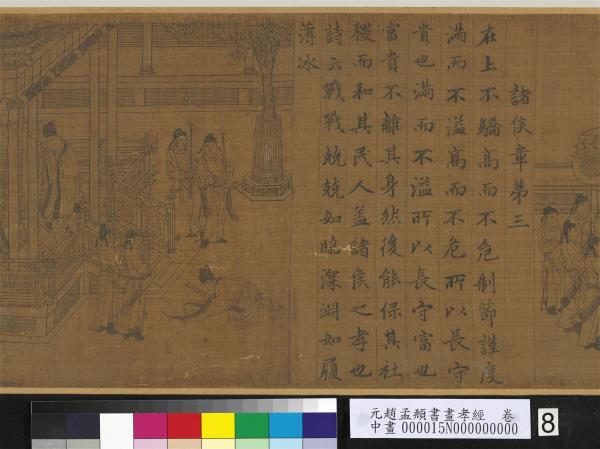 諸侯章第三
在上不驕高而不危制節謹度
滿而不溢高而不危所以長守
貴也滿而不溢所以長守富也
富貴不離其身然後能保其社
稷而和其民人蓋諸侯之孝也
詩云戰戰兢兢如臨深淵如履
薄冰
元趙孟頫書畫孝經 卷
中畫 000015N000000000
8